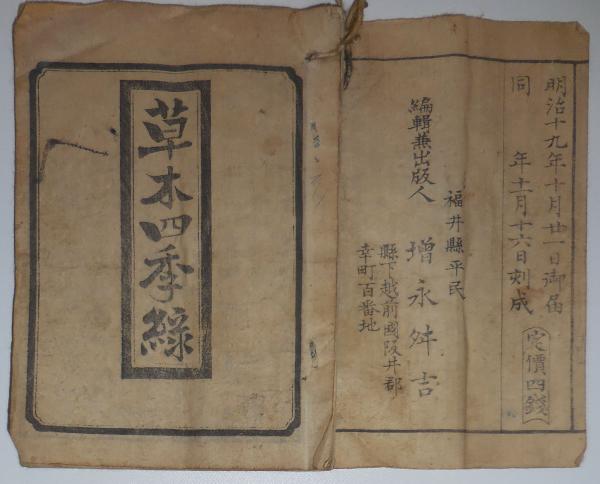 明治十九年十月廿一日御届
同 年十一月十六日刻成
定價四錢
福井縣平民
編輯兼出版人 増永舛吉
縣下越前國阪井郡
幸町百番地
草木四季緑